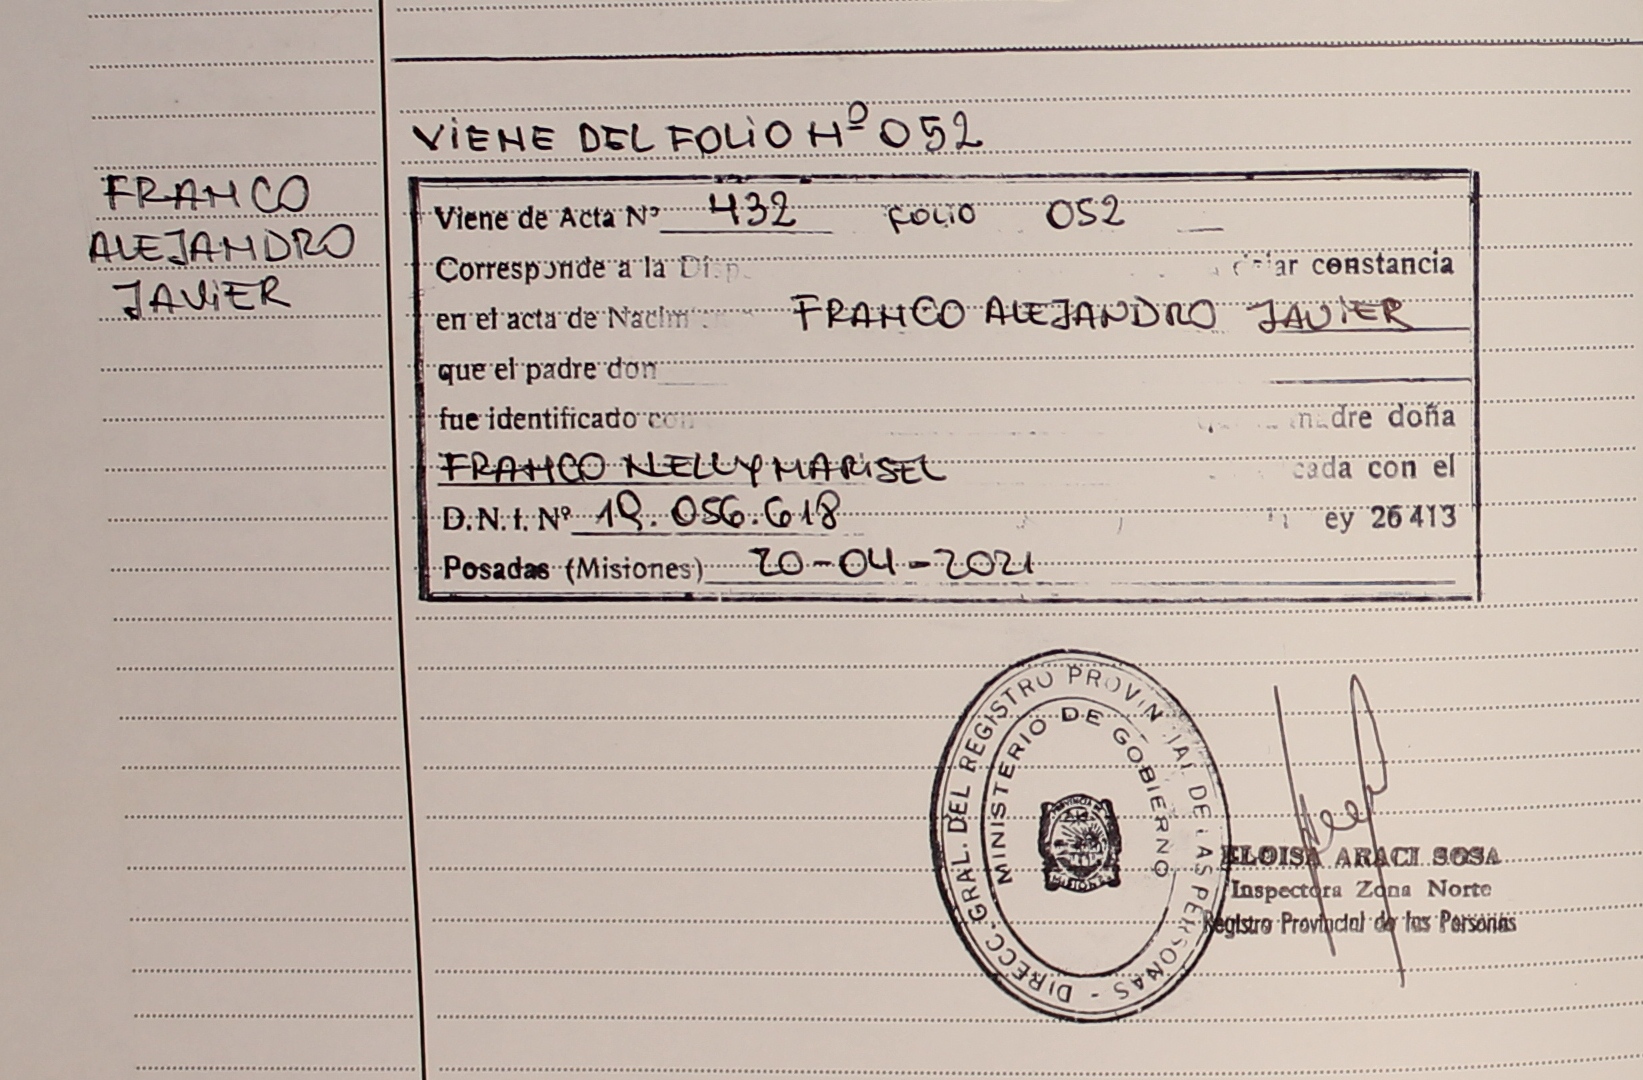 VIENE DEL FOLIO Nº 052
FRANCO
ALEJANDRO
JAVIER
Viene de Acta Nº 432 FOLIO 052
Corresponde a la Disp. dejar constancia
en el acta de Nacim FRANCO ALEJANDRO JAVIER
que el padre don
fue identificado con madre doña
FRANCO NELLY MARISEL cada con el
D.N.I. Nº 19.056.618 ey 26413
Posadas (Misiones) 20-04-2021
DIRECC. GRAL. DEL REGISTRO PROVINCIAL DE LAS PERSONAS -
MINISTERIO DE GOBIERNO
ELOISA ARACI SOSA
Inspectora Zona Norte
Registro Provincial de las Personas